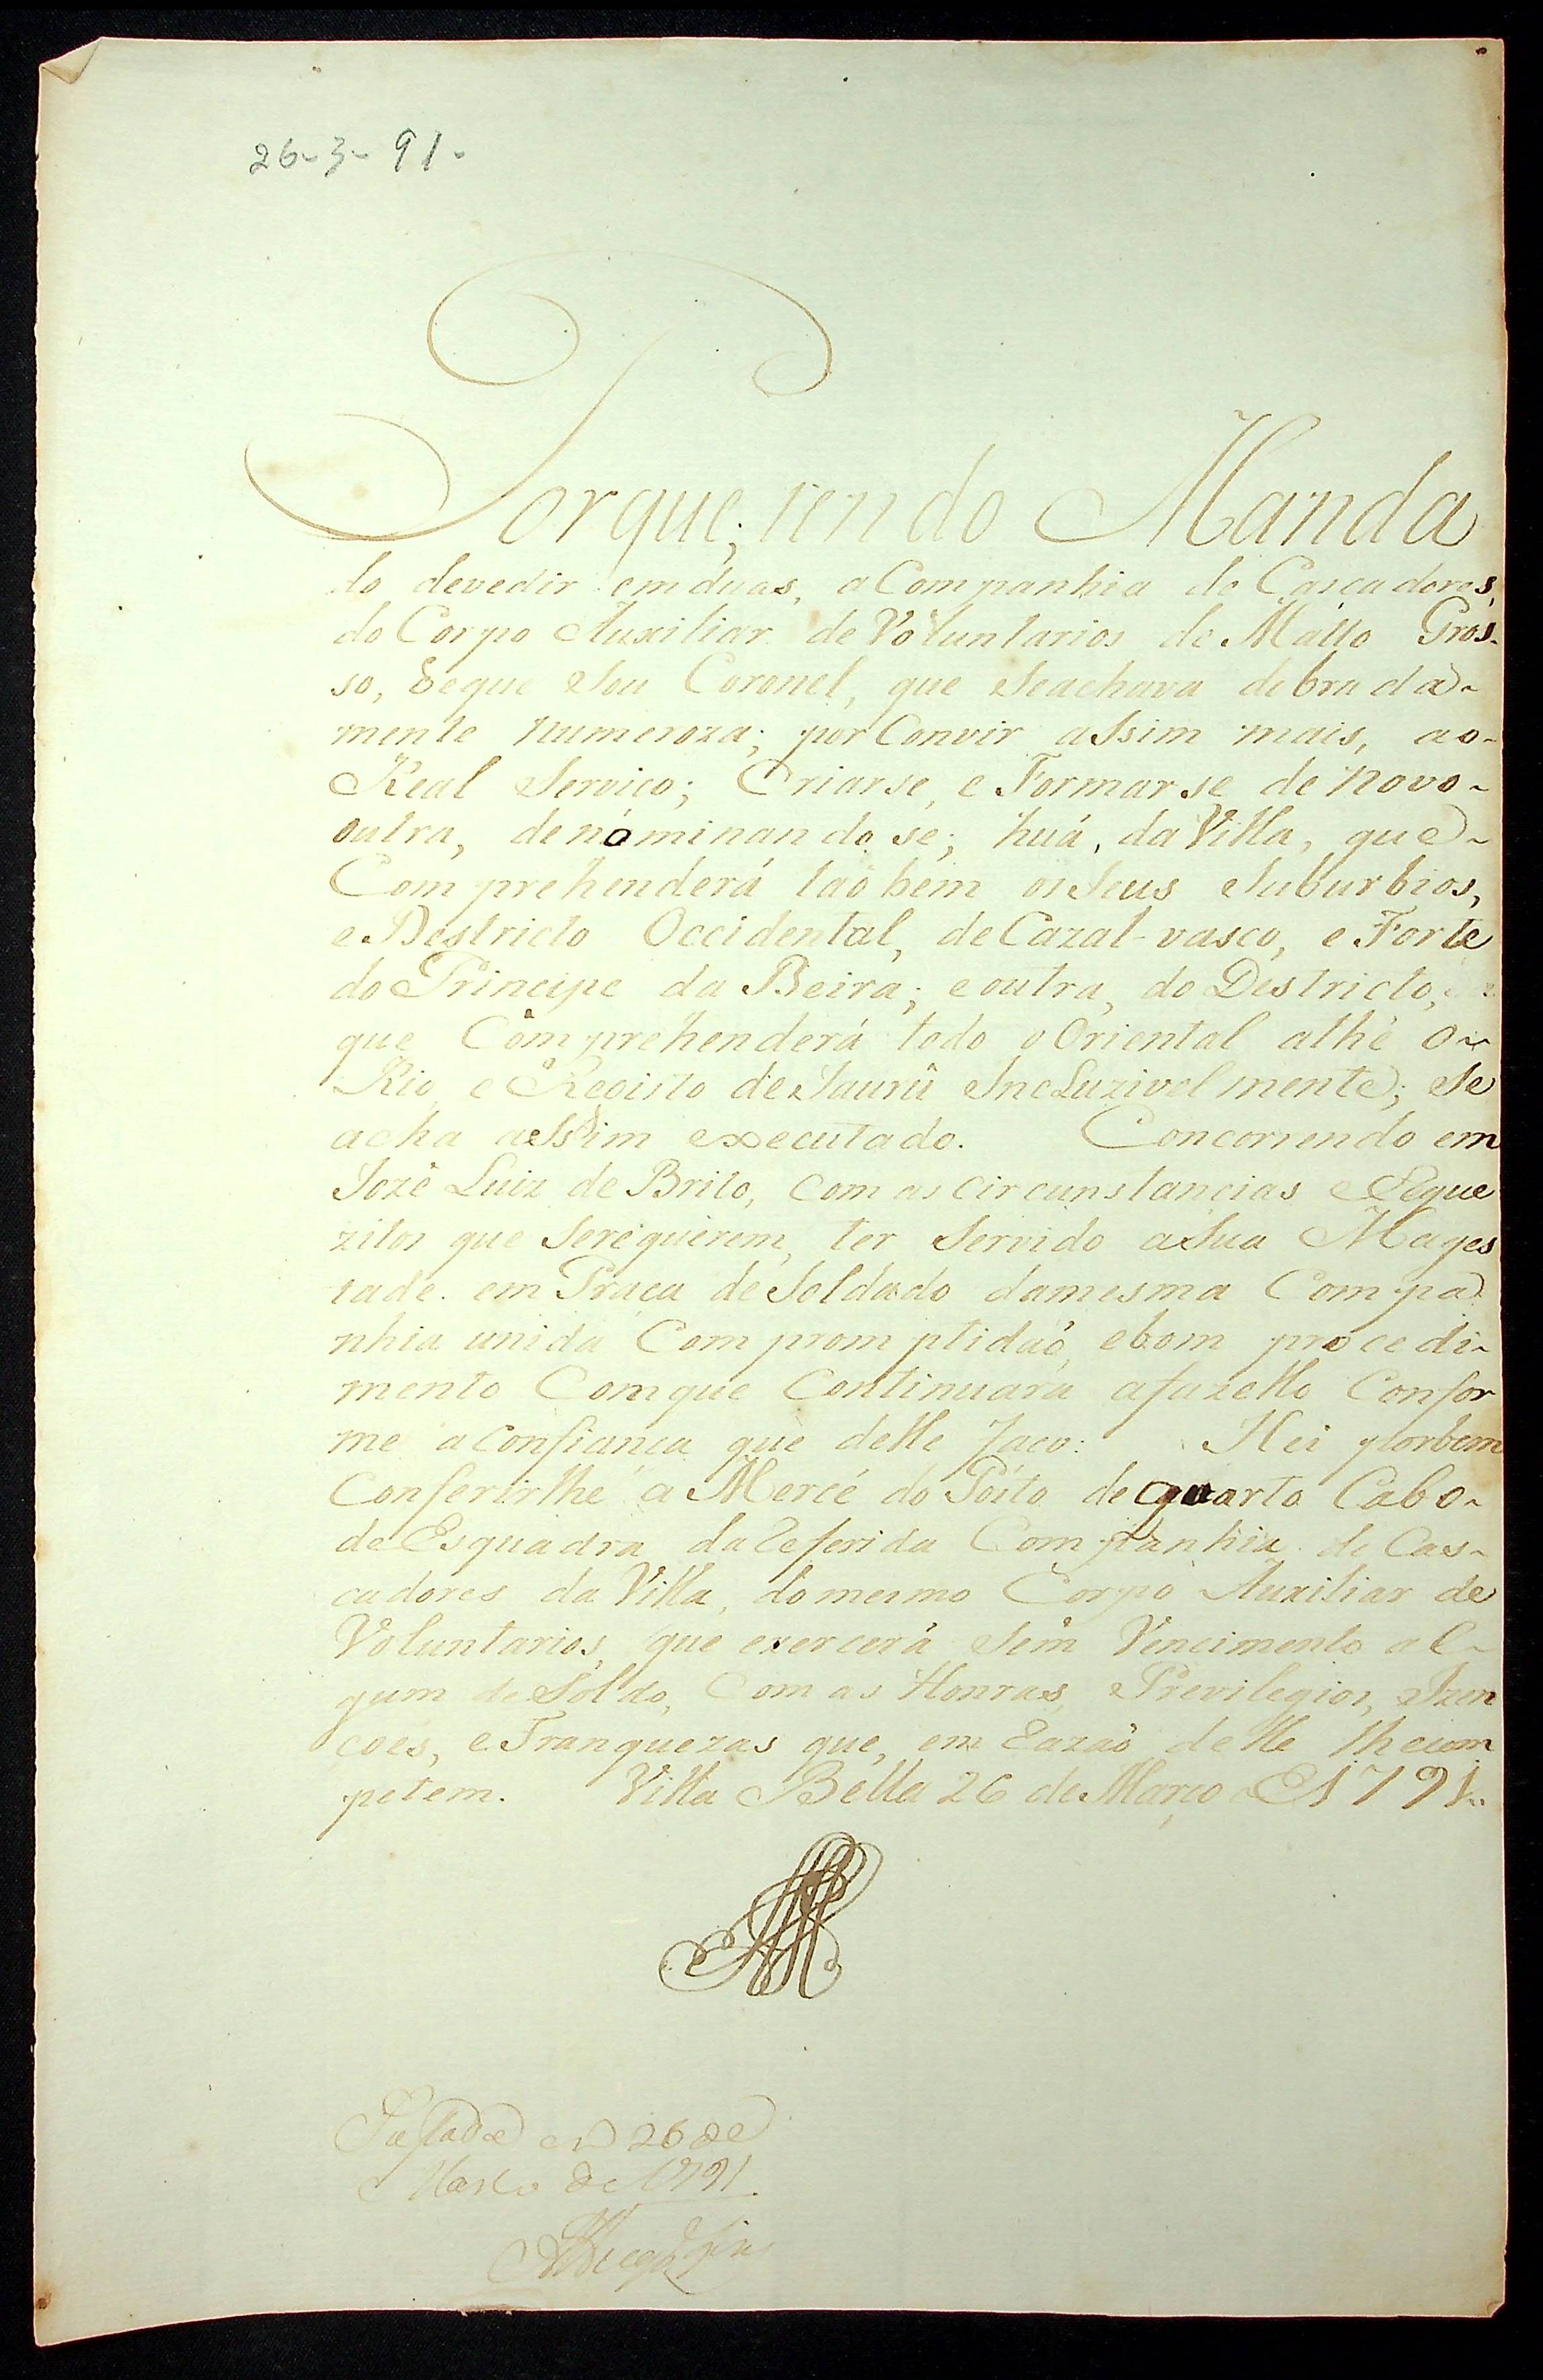 26-3-91-
Porque, tendo Manda
do devedir em duas, a Companhia de Cascadores,
do Corpo Auxiliar de Voluntarios de Matto Gros-
so, de que sou Coronel, que se achava dobrada-
mente numeroza; por Convir assim mais, ao
Real Serviço; Criarse, e Formar se de novo
outra, denóminando se; huá, da Villa, que
Comprehenderá taõ bem os Seus Suburbios,
e Destricto Occidental, de Cazal-vasco, e Forte
do Principe da Beira; e outra, do Destricto,
que Comprehenderá todo o Oriental athé o
Rio, e Registo de Jaurú Incluzivelmente; Se
acha assim executado. Concorrendo em
Jozé Luiz de Brito, com as circunstancias e Reque
zitos que se requerem, ter Servido a Sua Mages
tade em Praça de Soldado da mesma Compa
nhia unida Com promptidaõ, e bom procedi-
mento Com que Continuará a fazello Confor
me a confiança que delle faço: Hei por bem
Conferirlhe a Mercé do Posto de quarto Cabo
de Esquadra da Referida Companhia de Cas-
cadores da Villa, do mesmo Corpo Auxiliar de
Voluntarios, que exercerá Sem Vencimento al-
gum de Soldo, Com as Honras, Previlegios, Izen
çoes, e Franquezas que, em Razaõ delle lhe com
petem. Villa Bella 26 de Março de 1791.
Passada em 26 de
Março de 1791.